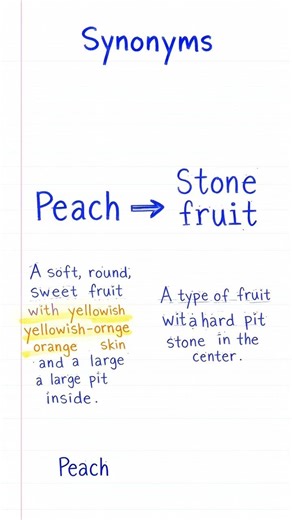 Synonyms
Peach ⇒ Stone fruit
A soft, round,
sweet fruit
with yellowish
yellowish-ornge
orange skin
and a large
a large pit
inside.
A type of fruit
wit a hard pit
stone in the
center.
Peach